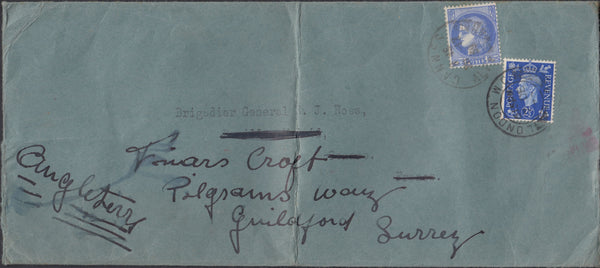 Brigadier General . J. Ross,
Friars Croft
Pilgrams way
Guildford
Surrey
Angleterre
POSTAGE REVENUE
LONDON